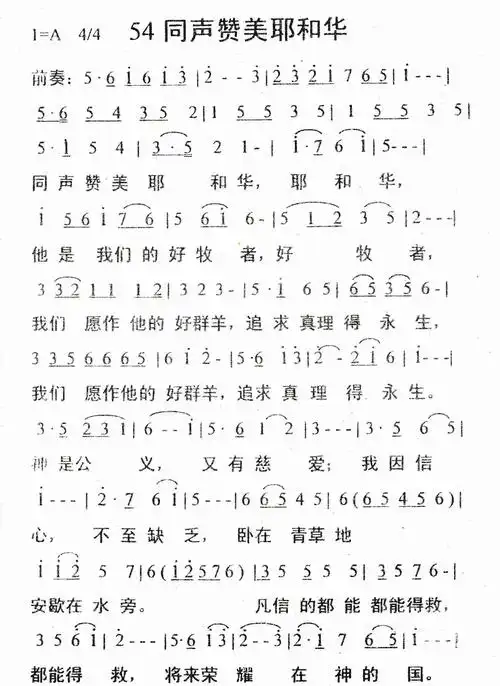 1=A 4/4 54 同声赞美耶和华
前奏: 5·6 i 6 i 3|2--3|2 3 2 i 7 6 5|i---|
5·6 5 4 3 5 2|1 5 5 3 5|1 5 5 3 5|
5·1 5 4|3·5 2 1-|i·7 6 i|5---|
同声赞美耶 和华, 耶和华,
i 5 6 i 7 6|5 6 i 6-|5 1 2 3 5|2---|
他是 我们的好牧 者,好 牧 者,
3 3 2 1 1 1 2|3 2 3-|5·i 6 5|6 5 3 5 6-|
我们 愿作 他的 好群羊,追求 真理 得 永 生,
3 3 5 6 6 6 5|6 i 2-|5·6 i 3|2-2 i 6|i---|
我们 愿作他的 好群羊,追求 真 理 得 永生。
3·5 2 3 1|6--i|5·6 1 2|3---|3·5 6 5|
神是公 义, 又有慈 爱; 我因信
i---|2·7 6 i|5---|6 6 4 5|6(6 5 4 5 6)|
心, 不至缺 乏, 卧在 青草地
i i 2 5 7|6(i 2 5 7 6)|3 5 5 5|3 5 7 6-|
安歇在 水 旁。 凡信 的都 能 都能得救,
3 5 6 i|2---|5·6 i 3|2--i|2·i 7 6 5|i---|
都能得 救, 将来荣 耀 在 神 的 国。